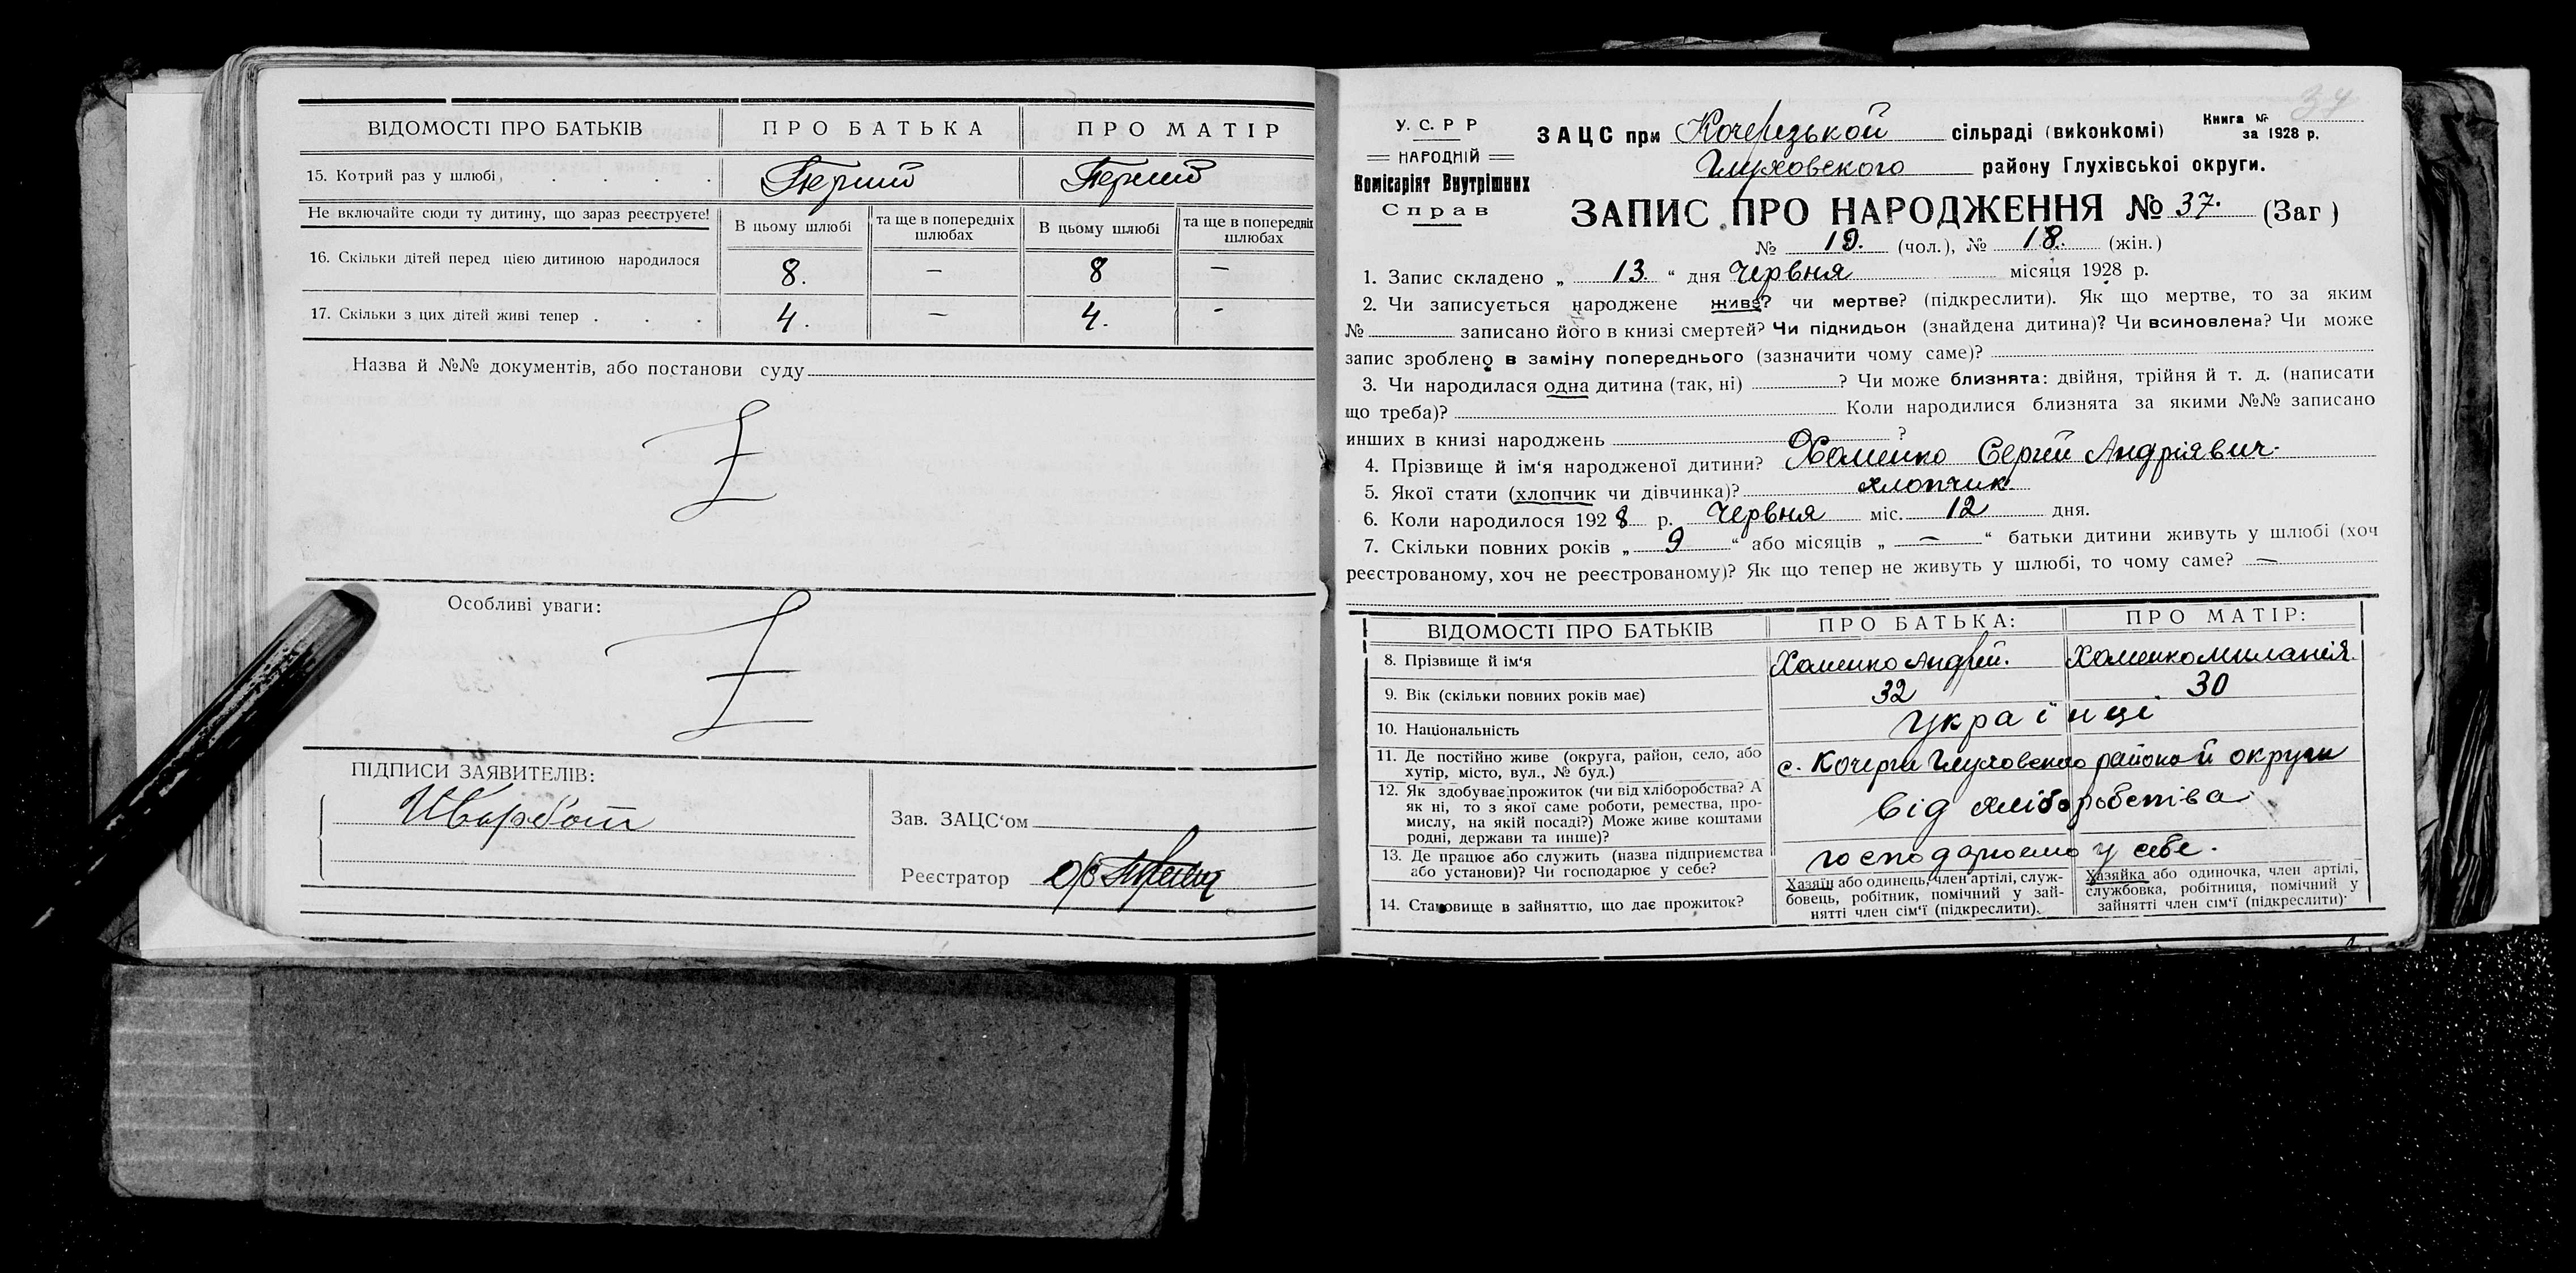 ВІДОМОСТІ ПРО БАТЬКІВ ПРО БАТЬКА ПРО МАТІР
15. Котрий раз у шлюбі Перший Перший
Не включайте сюди ту дитину, що зараз реєструєте! В цьому шлюбі та ще в попередніх шлюбах В цьому шлюбі та ще в попередніх шлюбах
16. Скільки дітей перед цією дитиною народилося 8. — 8 —
17. Скільки з цих дітей живі тепер . . . 4. — 4. -
Назва й №№ документів, або постанови суду
Особливі уваги:
ПІДПИСИ ЗАЯВИТЕЛІВ:
Зав. ЗАЦС‘ом
Реєстратор
У. С. Р Р
НАРОДНІЙ
Комісаріят Внутрішніх
Справ
ЗАЦС при Кочерзькой сільраді (виконкомі)
Книга №
за 1928 р.
Глуховского району Глухівської округи.
ЗАПИС ПРО НАРОДЖЕННЯ № 37. (Заг)
№ 19. (чол.), № 18. (жін.)
1. Запис складено „ 13. “ дня Червня місяця 1928 р.
2. Чи записується народжене живе? чи мертве? (підкреслити). Як що мертве, то за яким
№ записано його в книзі смертей? Чи підкидьок (знайдена дитина)? Чи всиновлена? Чи може
запис зроблено в заміну попереднього (зазначити чому саме)?
3. Чи народилася одна дитина (так, ні) ? Чи може близнята: двійня, трійня й т. д. (написати
що треба)? Коли народилися близнята за якими №№ записано
инших в книзі народжень ?
4. Прізвище й ім‘я народженої дитини? Хоменко Сергій Андріявич.
5. Якої стати (хлопчик чи дівчинка)? хлопчик.
6. Коли народилося 1928 р. Червня міс. 12 дня.
7. Скільки повних років „ 9 “ або місяців „ — “ батьки дитини живуть у шлюбі (хоч
реєстрованому, хоч не реєстрованому)? Як що тепер не живуть у шлюбі, то чому саме? —
ВІДОМОСТІ ПРО БАТЬКІВ ПРО БАТЬКА: ПРО МАТІР:
8. Прізвище й ім‘я Хоменко Андрій. Хоменко Миланія.
9. Вік (скільки повних років має) 32 30
10. Національність українці
11. Де постійно живе (округа, район, село, або
хутір, місто, вул., № буд.) с. Кочерги Глуховского района й округи
12. Як здобуває прожиток (чи від хліборобства? А
як ні, то з якої саме роботи, ремества, про-
мислу, на якій посаді?) Може живе коштами
родні, держави та инше)? від хліборобства
13. Де працює або служить (назва підприємства
або установи)? Чи господарює у себе? господарюемо у себе.
14. Становище в зайняттю, що дає прожиток?
Хазяїн або одинець, член артілі, служ-
бовець, робітник, помічний у зай-
нятті член сім‘ї (підкреслити).
Хазяйка або одиночка, член артілі,
службовка, робітниця, помічний у
зайнятті член сім‘ї (підкреслити).